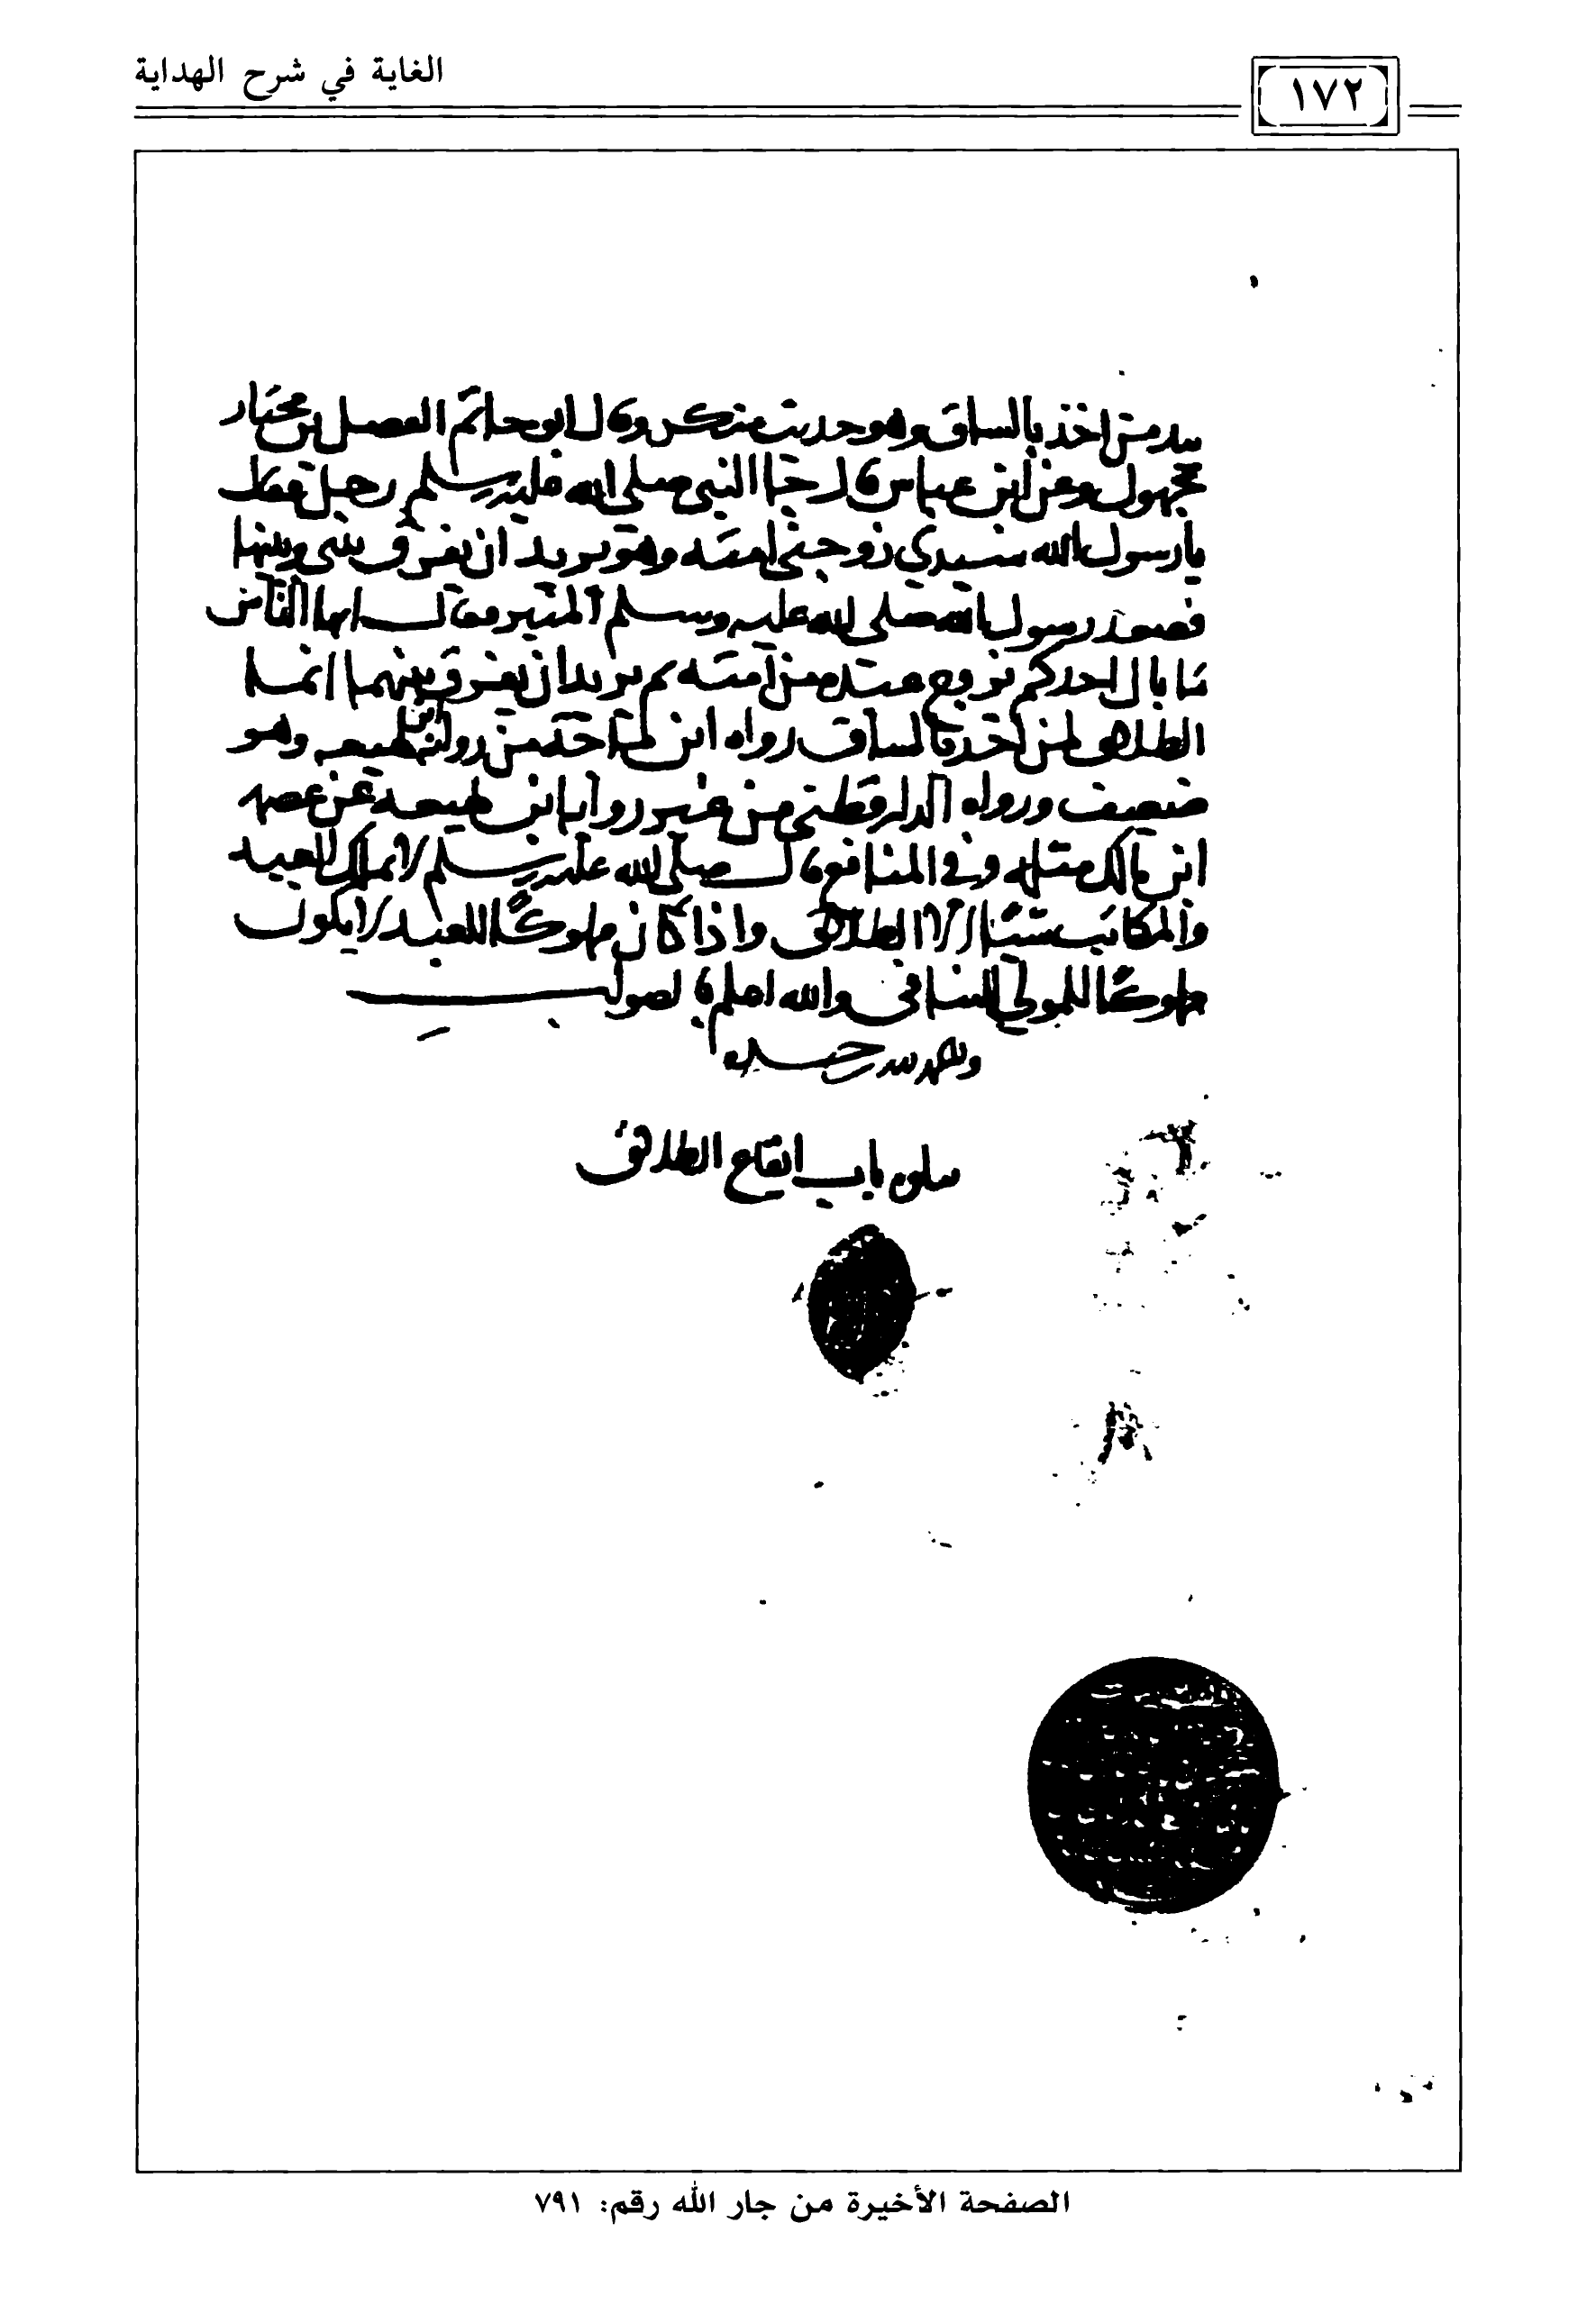 ١٧٢
الغاية في شرح الهداية
بيد من اخذ بالساق وهو حديث منكر وقال ابو حاتم الفضل بن مختار
مجهول وعن ابن عباس قال جا النبي صلى الله عليه وسلم رجل فقال
يا رسول الله سيدي زوجني امته وهو يريد ان يفرق بيني وبينها
فصعد رسول الله صلى الله عليه وسلم المنبر وقال ايها الناس
ما بال احدكم يزوج عبده من امته ثم يريد ان يفرق بينهما انما
الطلاق لمن اخذ بالساق رواه ابن ماجة من رواية ابن لهيعه وهو
ضعيف ورواه الدارقطني من غير رواية ابن لهيعة عن عصمه
ابن مالك مثله وفي المنافع قال صلى الله عليه وسلم لا يملك العبد
والمكاتب شيئا الا الطلاق واذا كان مملوكا للعبد لا يكون
مملوكا للمولى للتنافي والله اعلم بالصواب
والحمد لله وحده
يتلوه باب ايقاع الطلاق
الصفحة الأخيرة من جار الله رقم: ٧٩١